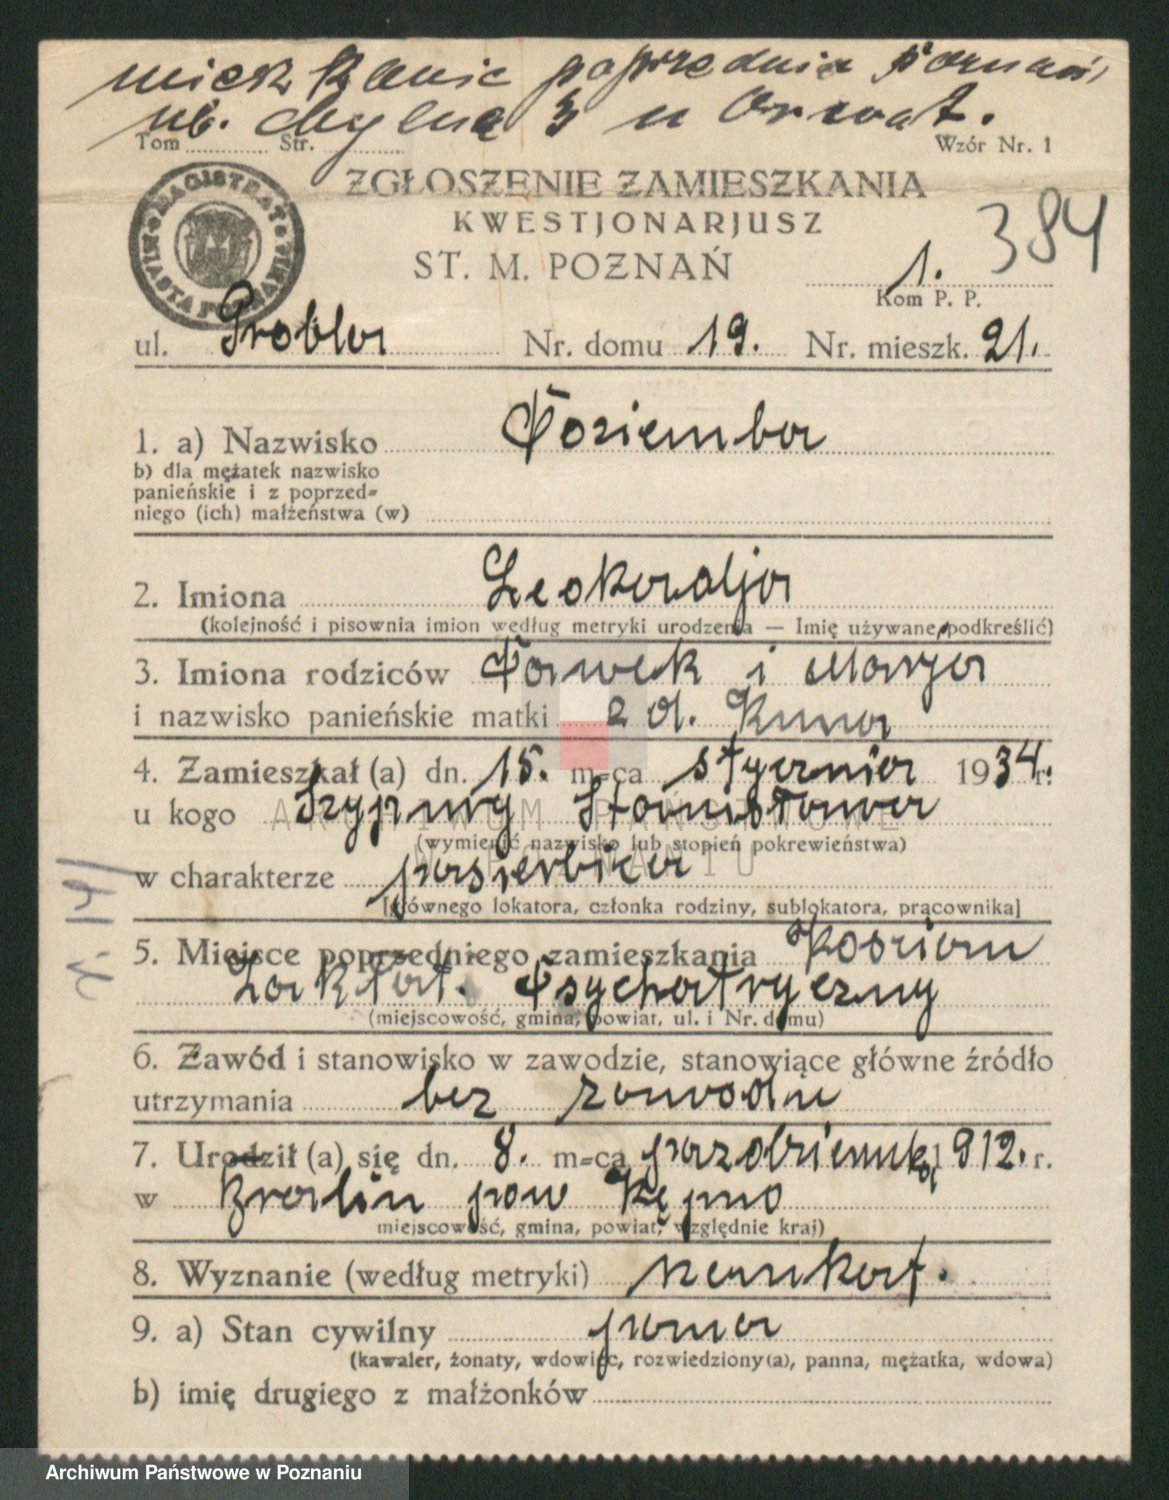 mieszkanie poprzednia Poznań
ul. Chylna 3 u Orwat.
Tom Str. Wzór Nr. 1
MAGISTRAT MIASTA POZNANIA
ZGŁOSZENIE ZAMIESZKANIA
KWESTJONARJUSZ
384
ST. M. POZNAŃ
1.
Kom P. P.
ul. Grobla Nr. domu 19. Nr. mieszk. 21.
1. a) Nazwisko Poziemba
b) dla mężatek nazwisko
panieńskie i z poprzed=
niego (ich) małżeństwa (w)
2. Imiona Leokadja
(kolejność i pisownia imion według metryki urodzenia — Imię używane, podkreślić)
3. Imiona rodziców Pawek i Marja
i nazwisko panieńskie matki z d. Kuna
4. Zamieszkał (a) dn. 15. m=ca stycznia 1934 r.
u kogo Szyjmy Stanisława
(wymienić nazwisko lub stopień pokrewieństwa)
w charakterze pasierbica
[głównego lokatora, członka rodziny, sublokatora, pracownika]
5. Miejsce poprzedniego zamieszkania Kościan
Zakład. Psychatryczny
(miejscowość, gmina, powiat, ul. i Nr. domu)
6. Zawód i stanowisko w zawodzie, stanowiące główne źródło
utrzymania bez zawodu
7. Urodził (a) się dn. 8. m=ca października 1912. r.
w Bralin pow Kępno
miejscowość, gmina, powiat, względnie kraj)
8. Wyznanie (według metryki) rzymkat.
9. a) Stan cywilny panna
(kawaler, żonaty, wdowiec, rozwiedziony(a), panna, mężatka, wdowa)
b) imię drugiego z małżonków
ARCHIWUM PAŃSTWOWE
W POZNANIU
Archiwum Państwowe w Poznaniu